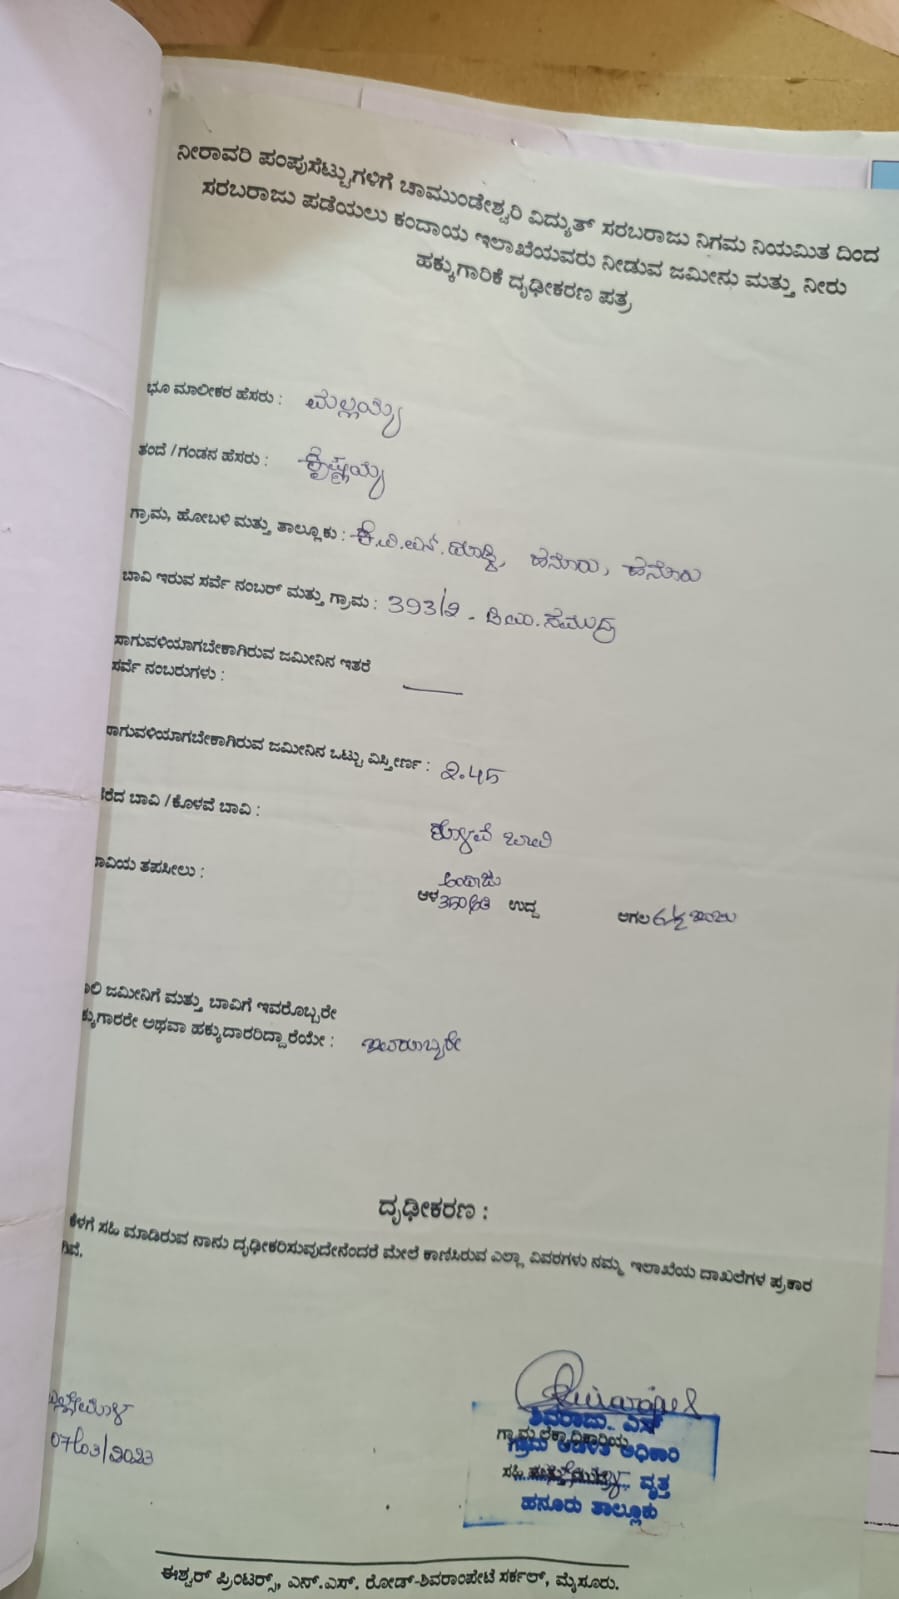 ನೀರಾವರಿ ಪಂಪುಸೆಟ್ಟುಗಳಿಗೆ ಚಾಮುಂಡೇಶ್ವರಿ ವಿದ್ಯುತ್ ಸರಬರಾಜು ನಿಗಮ ನಿಯಮಿತ ದಿಂದ
ಸರಬರಾಜು ಪಡೆಯಲು ಕಂದಾಯ ಇಲಾಖೆಯವರು ನೀಡುವ ಜಮೀನು ಮತ್ತು ನೀರು
ಹಕ್ಕುಗಾರಿಕೆ ದೃಢೀಕರಣ ಪತ್ರ
ಭೂ ಮಾಲೀಕರ ಹೆಸರು : ಮಲ್ಲಯ್ಯ
ತಂದೆ / ಗಂಡನ ಹೆಸರು : ಕೃಷ್ಣಯ್ಯ
ಗ್ರಾಮ, ಹೋಬಳಿ ಮತ್ತು ತಾಲ್ಲೂಕು : ಕೆ.ವಿ.ಎನ್. ದೊಡ್ಡಿ, ಹನೂರು, ಹನೂರು
ಬಾವಿ ಇರುವ ಸರ್ವೆ ನಂಬರ್ ಮತ್ತು ಗ್ರಾಮ : 393/2 - ಡಿ.ಎಂ. ಸಮುದ್ರ
ಸಾಗುವಳಿಯಾಗಬೇಕಾಗಿರುವ ಜಮೀನಿನ ಇತರೆ
ಸರ್ವೆ ನಂಬರುಗಳು :
ಸಾಗುವಳಿಯಾಗಬೇಕಾಗಿರುವ ಜಮೀನಿನ ಒಟ್ಟು ವಿಸ್ತೀರ್ಣ : 2.45
ರೆದ ಬಾವಿ / ಕೊಳವೆ ಬಾವಿ : ಕೊಳವೆ ಬಾವಿ
ಬಾವಿಯ ತಪಸೀಲು : ಅಂದಾಜು
ಆಳ 350 ಅಡಿ ಉದ್ದ ಅಗಲ 6½ ಇಂಚು
ಲಿ ಜಮೀನಿಗೆ ಮತ್ತು ಬಾವಿಗೆ ಇವರೊಬ್ಬರೇ
ಕ್ಕುಗಾರರೇ ಅಥವಾ ಹಕ್ಕುದಾರರಿದ್ದಾರೆಯೇ : ಇವರೊಬ್ಬರೇ
ದೃಢೀಕರಣ :
ಕೆಳಗೆ ಸಹಿ ಮಾಡಿರುವ ನಾನು ದೃಢೀಕರಿಸುವುದೇನೆಂದರೆ ಮೇಲೆ ಕಾಣಿಸಿರುವ ಎಲ್ಲಾ ವಿವರಗಳು ನಮ್ಮ ಇಲಾಖೆಯ ದಾಖಲೆಗಳ ಪ್ರಕಾರ
ಶಿವರಾಜು. ಎನ್
ಗ್ರಾಮ ಲೆಕ್ಕಾಧಿಕಾರಿಯ
ಗ್ರಾಮ ಆಡಳಿತ ಅಧಿಕಾರಿ
ಸಹಿ ಮತ್ತು ಮುದ್ರೆ
ವೃತ್ತ
ಹನೂರು ತಾಲ್ಲೂಕು
07/03/2023
ಈಶ್ವರ್ ಪ್ರಿಂಟರ್ಸ್, ಎನ್.ಎಸ್. ರೋಡ್-ಶಿವರಾಂಪೇಟೆ ಸರ್ಕಲ್, ಮೈಸೂರು.